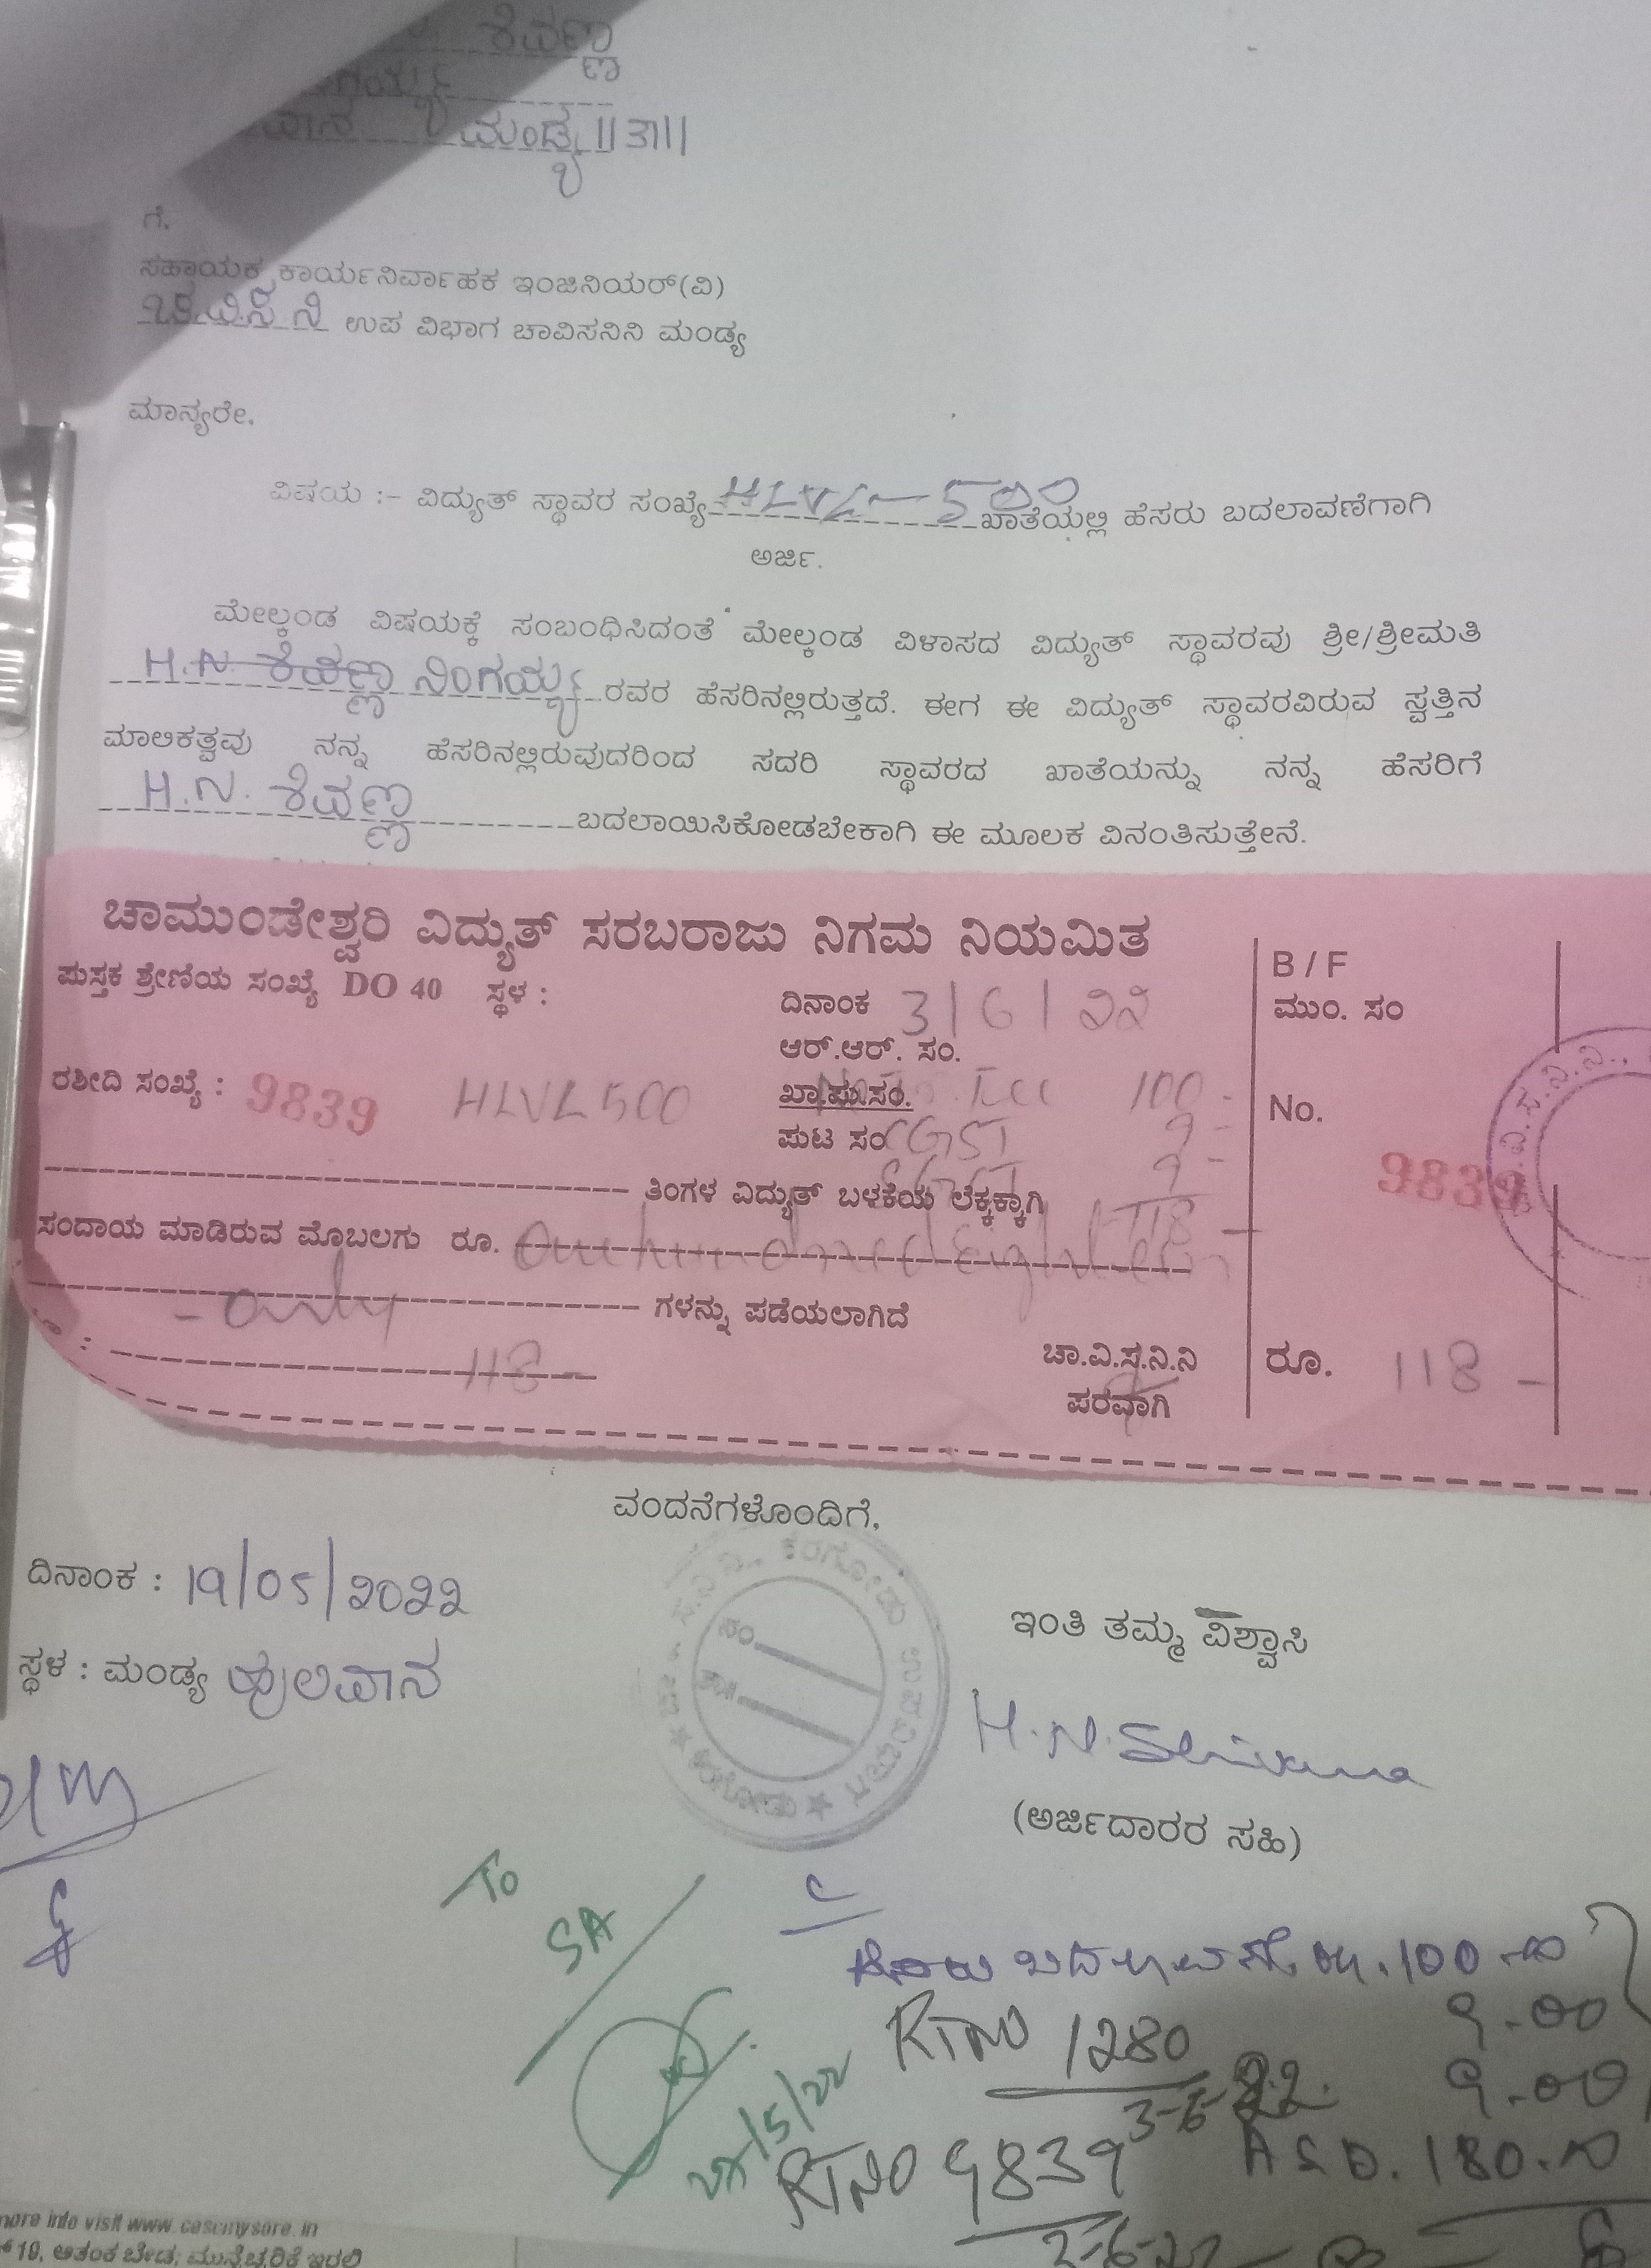 ಶಿವಣ್ಣ
ಮಂಡ್ಯ ||ತಾ||
ಗೆ.
ಸಹಾಯಕ ಕಾರ್ಯನಿರ್ವಾಹಕ ಇಂಜಿನಿಯರ್(ವಿ)
ಉಪ ವಿಭಾಗ ಚಾವಿಸನಿನಿ ಮಂಡ್ಯ
ಮಾನ್ಯರೇ.
ವಿಷಯ :- ವಿದ್ಯುತ್ ಸ್ಥಾವರ ಸಂಖ್ಯೆ HLVL-500 ಖಾತೆಯಲ್ಲಿ ಹೆಸರು ಬದಲಾವಣೆಗಾಗಿ
ಅರ್ಜಿ.
ಮೇಲ್ಕಂಡ ವಿಷಯಕ್ಕೆ ಸಂಬಂಧಿಸಿದಂತೆ ಮೇಲ್ಕಂಡ ವಿಳಾಸದ ವಿದ್ಯುತ್ ಸ್ಥಾವರವು ಶ್ರೀ/ಶ್ರೀಮತಿ
H.N. ಶಿವಣ್ಣ ನಿಂಗಯ್ಯ ರವರ ಹೆಸರಿನಲ್ಲಿರುತ್ತದೆ. ಈಗ ಈ ವಿದ್ಯುತ್ ಸ್ಥಾವರವಿರುವ ಸ್ವತ್ತಿನ
ಮಾಲಿಕತ್ವವು ನನ್ನ ಹೆಸರಿನಲ್ಲಿರುವುದರಿಂದ ಸದರಿ ಸ್ಥಾವರದ ಖಾತೆಯನ್ನು ನನ್ನ ಹೆಸರಿಗೆ
H.N. ಶಿವಣ್ಣ ಬದಲಾಯಿಸಿಕೋಡಬೇಕಾಗಿ ಈ ಮೂಲಕ ವಿನಂತಿಸುತ್ತೇನೆ.
ಚಾಮುಂಡೇಶ್ವರಿ ವಿದ್ಯುತ್ ಸರಬರಾಜು ನಿಗಮ ನಿಯಮಿತ
ಪುಸ್ತಕ ಶ್ರೇಣಿಯ ಸಂಖ್ಯೆ DO 40 ಸ್ಥಳ :
ದಿನಾಂಕ 3/6/22
ಆರ್.ಆರ್. ಸಂ.
ರಶೀದಿ ಸಂಖ್ಯೆ : 9839 HLVL 500
ಖಾ.ಪು.ಸಂ. 100 -
ಪುಟ ಸಂ CGST 9 -
SGST 9 -
ತಿಂಗಳ ವಿದ್ಯುತ್ ಬಳಕೆಯ ಲೆಕ್ಕಕ್ಕಾಗಿ 118 -
ಸಂದಾಯ ಮಾಡಿರುವ ಮೊಬಲಗು ರೂ. One hundred Eighteen
- only ಗಳನ್ನು ಪಡೆಯಲಾಗಿದೆ
118 -
ಚಾ.ವಿ.ಸ.ನಿ.ನಿ
ಪರವಾಗಿ
B / F
ಮುಂ. ಸಂ
No.
9839
ರೂ. 118 -
ವಂದನೆಗಳೊಂದಿಗೆ.
ದಿನಾಂಕ : 19/05/2022
ಸ್ಥಳ : ಮಂಡ್ಯ ಹುಲಿವಾನ
ಇಂತಿ ತಮ್ಮ ವಿಶ್ವಾಸಿ
H.N. Shivanna
(ಅರ್ಜಿದಾರರ ಸಹಿ)
To
SA
ಹೆಸರು ಬದಲಾವಣೆ ರೂ. 100.00
9.00
9.00
RTNO 1280
3-6-22
RTNO 9839
3-6-22
ASD. 180.00
more info visit www.cescmysore.in
19, ಆತಂಕ ಬೇಡ; ಮುನ್ನೆಚ್ಚರಿಕೆ ಇರಲಿ